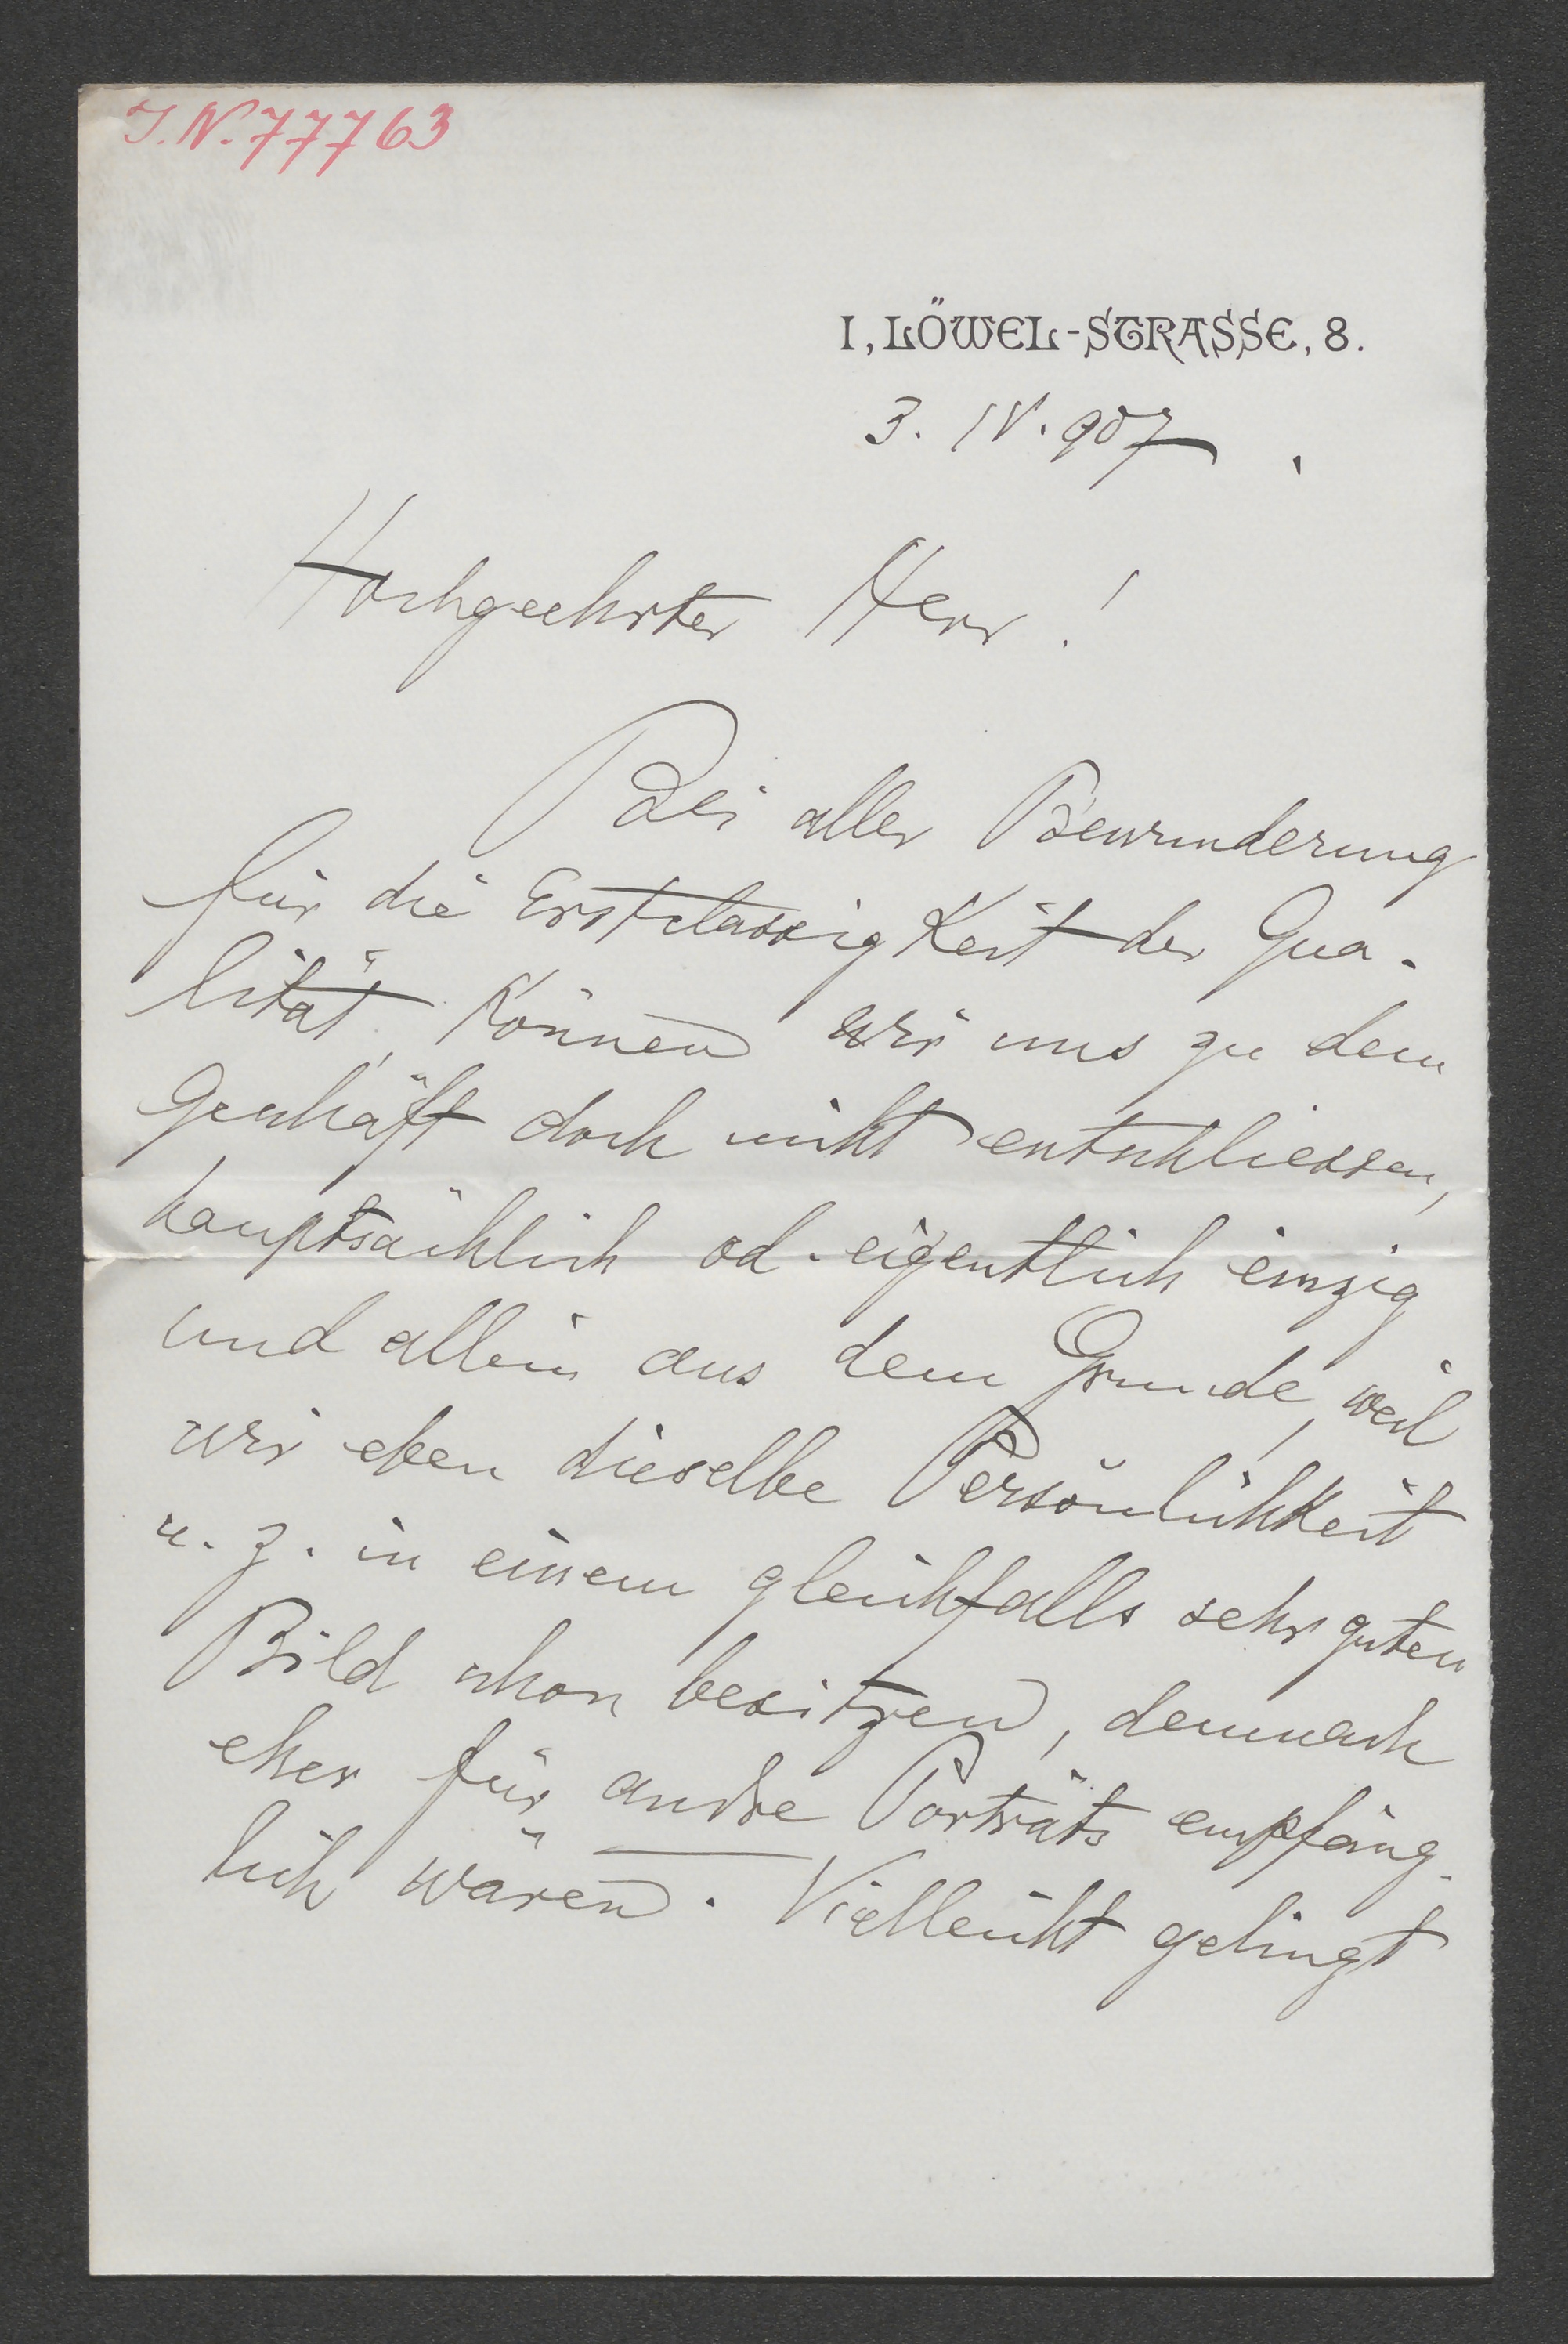 I.N. 77763
I, LÖWEL-STRASSE, 8.
3. IV. 907.
Hochgeehrter Herr!
Bei aller Bewunderung
für die Erstclassigkeit der Qua-
lität, können wir uns zu dem
Geschäft doch nicht entschliessen,
hauptsächlich od. eigentlich einzig
und allein aus dem Grunde, weil
wir eben dieselbe Persönlichkeit
u. z. in einem gleichfalls sehr guten
Bild schon besitzen, demnach
eher für andre Porträts empfäng-
lich wären. Vielleicht gelingt